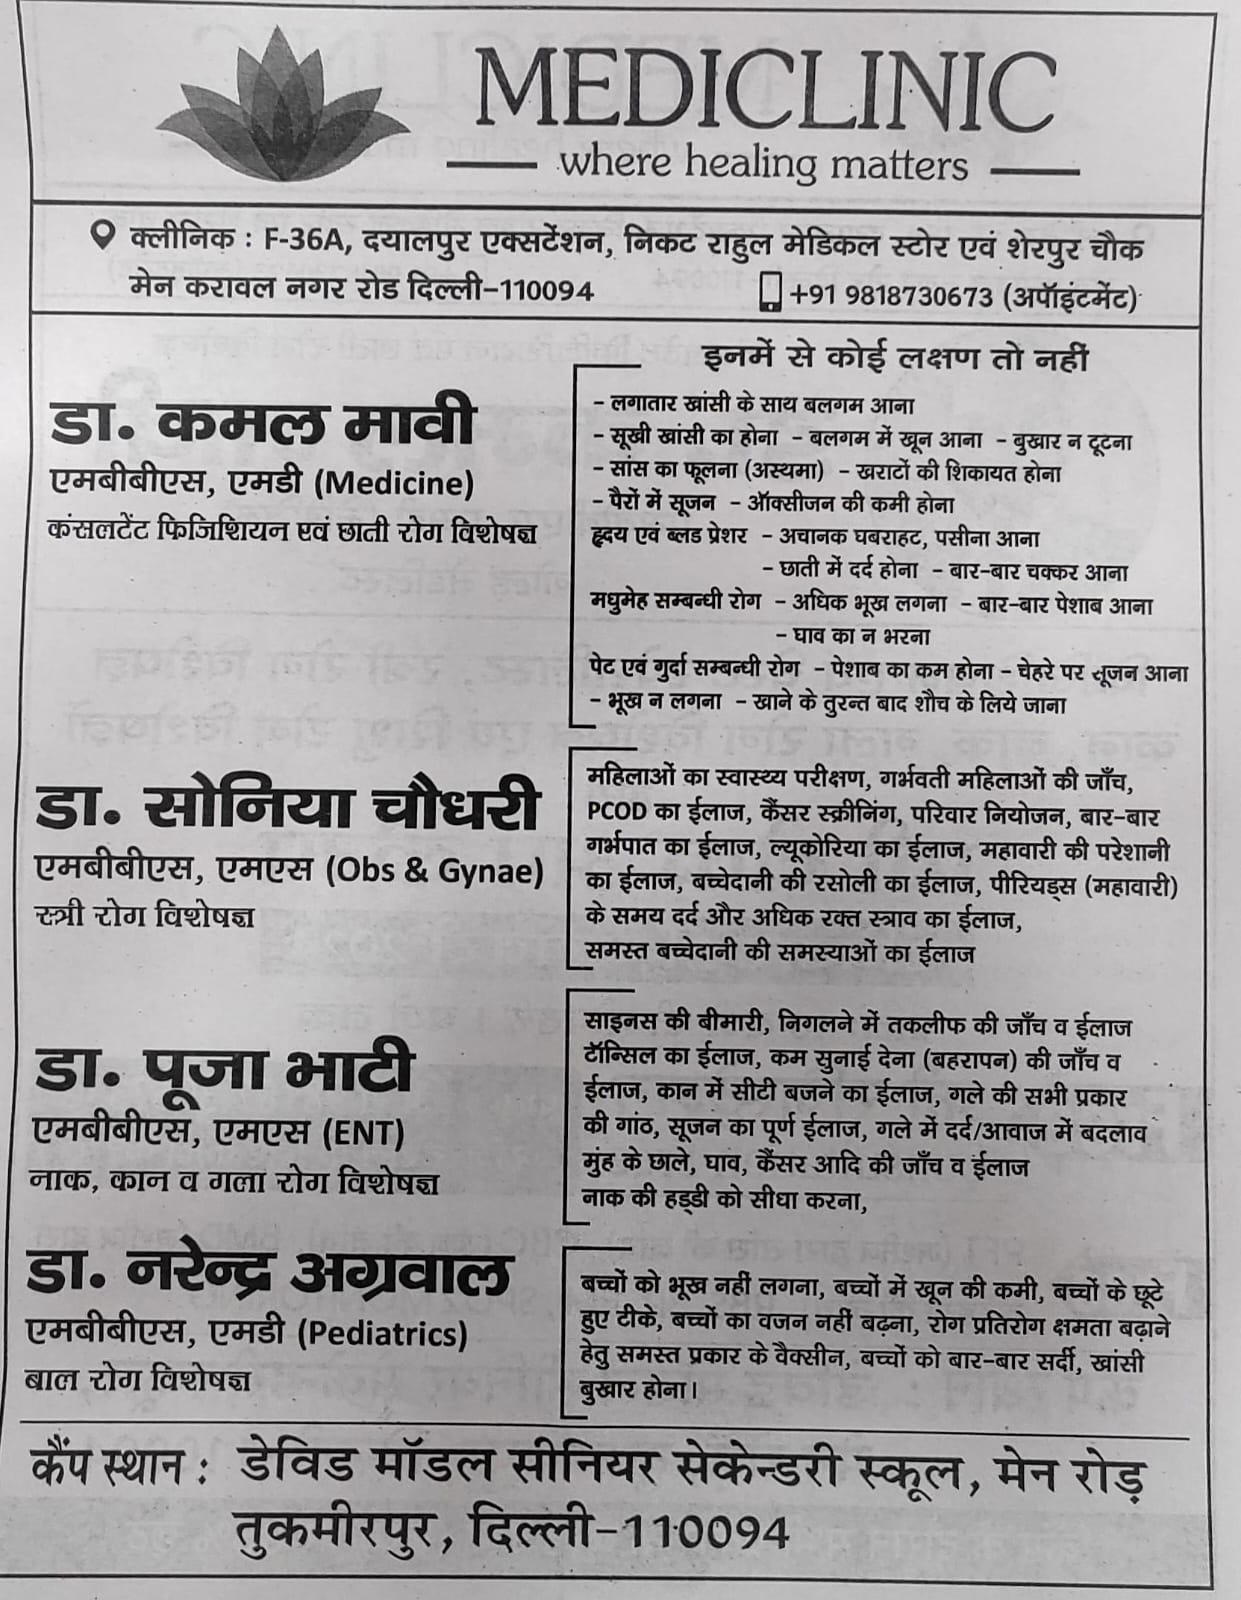 MEDICLINIC
where healing matters
क्लीनिक : F-36A, दयालपुर एक्सटेंशन, निकट राहुल मेडिकल स्टोर एवं शेरपुर चौक
मेन करावल नगर रोड दिल्ली-110094 +91 9818730673 (अपॉइंटमेंट)
इनमें से कोई लक्षण तो नहीं
डा. कमल मावी
एमबीबीएस, एमडी (Medicine)
कंसलटेंट फिजिशियन एवं छाती रोग विशेषज्ञ
- लगातार खांसी के साथ बलगम आना
- सूखी खांसी का होना - बलगम में खून आना - बुखार न टूटना
- सांस का फूलना (अस्थमा) - खराटों की शिकायत होना
- पैरों में सूजन - ऑक्सीजन की कमी होना
हृदय एवं ब्लड प्रेशर - अचानक घबराहट, पसीना आना
- छाती में दर्द होना - बार-बार चक्कर आना
मधुमेह सम्बन्धी रोग - अधिक भूख लगना - बार-बार पेशाब आना
- घाव का न भरना
पेट एवं गुर्दा सम्बन्धी रोग - पेशाब का कम होना - चेहरे पर सूजन आना
- भूख न लगना - खाने के तुरन्त बाद शौच के लिये जाना
डा. सोनिया चौधरी
एमबीबीएस, एमएस (Obs & Gynae)
स्त्री रोग विशेषज्ञ
महिलाओं का स्वास्थ्य परीक्षण, गर्भवती महिलाओं की जाँच,
PCOD का ईलाज, कैंसर स्क्रीनिंग, परिवार नियोजन, बार-बार
गर्भपात का ईलाज, ल्यूकोरिया का ईलाज, महावारी की परेशानी
का ईलाज, बच्चेदानी की रसोली का ईलाज, पीरियड्स (महावारी)
के समय दर्द और अधिक रक्त स्त्राव का ईलाज,
समस्त बच्चेदानी की समस्याओं का ईलाज
डा. पूजा भाटी
एमबीबीएस, एमएस (ENT)
नाक, कान व गला रोग विशेषज्ञ
साइनस की बीमारी, निगलने में तकलीफ की जाँच व ईलाज
टॉन्सिल का ईलाज, कम सुनाई देना (बहरापन) की जाँच व
ईलाज, कान में सीटी बजने का ईलाज, गले की सभी प्रकार
की गांठ, सूजन का पूर्ण ईलाज, गले में दर्द/आवाज में बदलाव
मुंह के छाले, घाव, कैंसर आदि की जाँच व ईलाज
नाक की हड्डी को सीधा करना,
डा. नरेन्द्र अग्रवाल
एमबीबीएस, एमडी (Pediatrics)
बाल रोग विशेषज्ञ
बच्चों को भूख नहीं लगना, बच्चों में खून की कमी, बच्चों के छूटे
हुए टीके, बच्चों का वजन नहीं बढ़ना, रोग प्रतिरोग क्षमता बढ़ाने
हेतु समस्त प्रकार के वैक्सीन, बच्चों को बार-बार सर्दी, खांसी
बुखार होना।
कैंप स्थान : डेविड मॉडल सीनियर सेकेन्डरी स्कूल, मेन रोड़
तुकमीरपुर, दिल्ली-110094